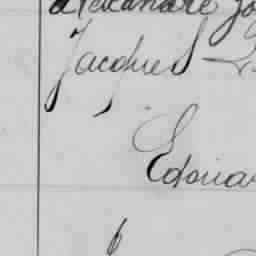 Alexandre Jo
Jacques L
Edouar